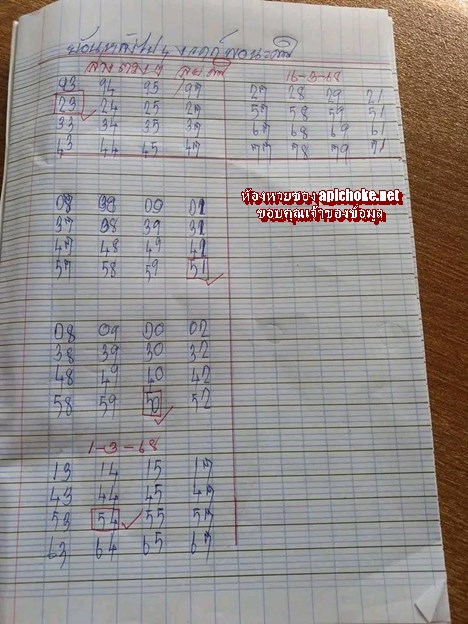 16-3-68
93 94 95 97
23 24 25 27
33 34 35 37
43 44 45 47
27 28 29 21
57 58 59 51
67 68 69 61
77 78 79 71
ห้องหวยซอง apichoke.net
ขอบคุณเจ้าของข้อมูล
37 38 39 31
47 48 49 41
57 58 59 51
08 09 00 02
38 39 30 32
48 49 40 42
58 59 50 52
1-3-68
13 14 15 17
43 44 45 47
53 54 55 57
63 64 65 67